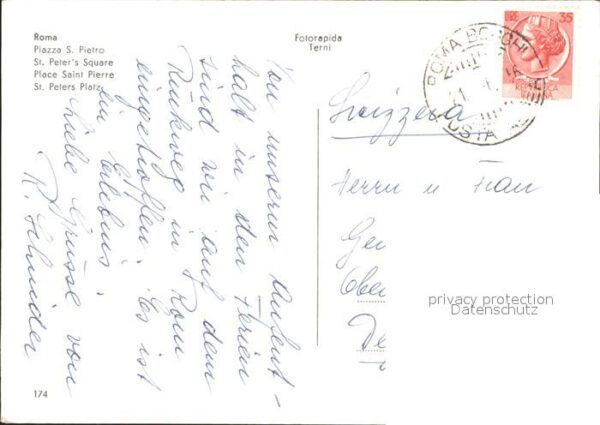 Roma
Piazza S. Pietro
St. Peter's Square
Place Saint Pierre
St. Peters Platz
Fotorapida
Terni
LIRE 35
ROMA BORGHI
POSTA
Svizzera
Herrn u Frau
Ge
Obe
De
privacy protection
Datenschutz
Von unserm Aufent-
halt in den Ferien
sind wir auf dem
Rückweg in Rom
eingetroffen. Es ist
ein Erlebnis.
Liebe Grüsse von
R. Schnider
174